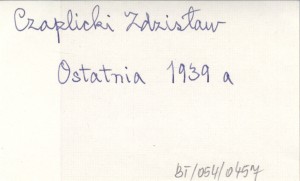 Czaplicki Zdzisław
Ostatnia 1939 a
BT/054/0457